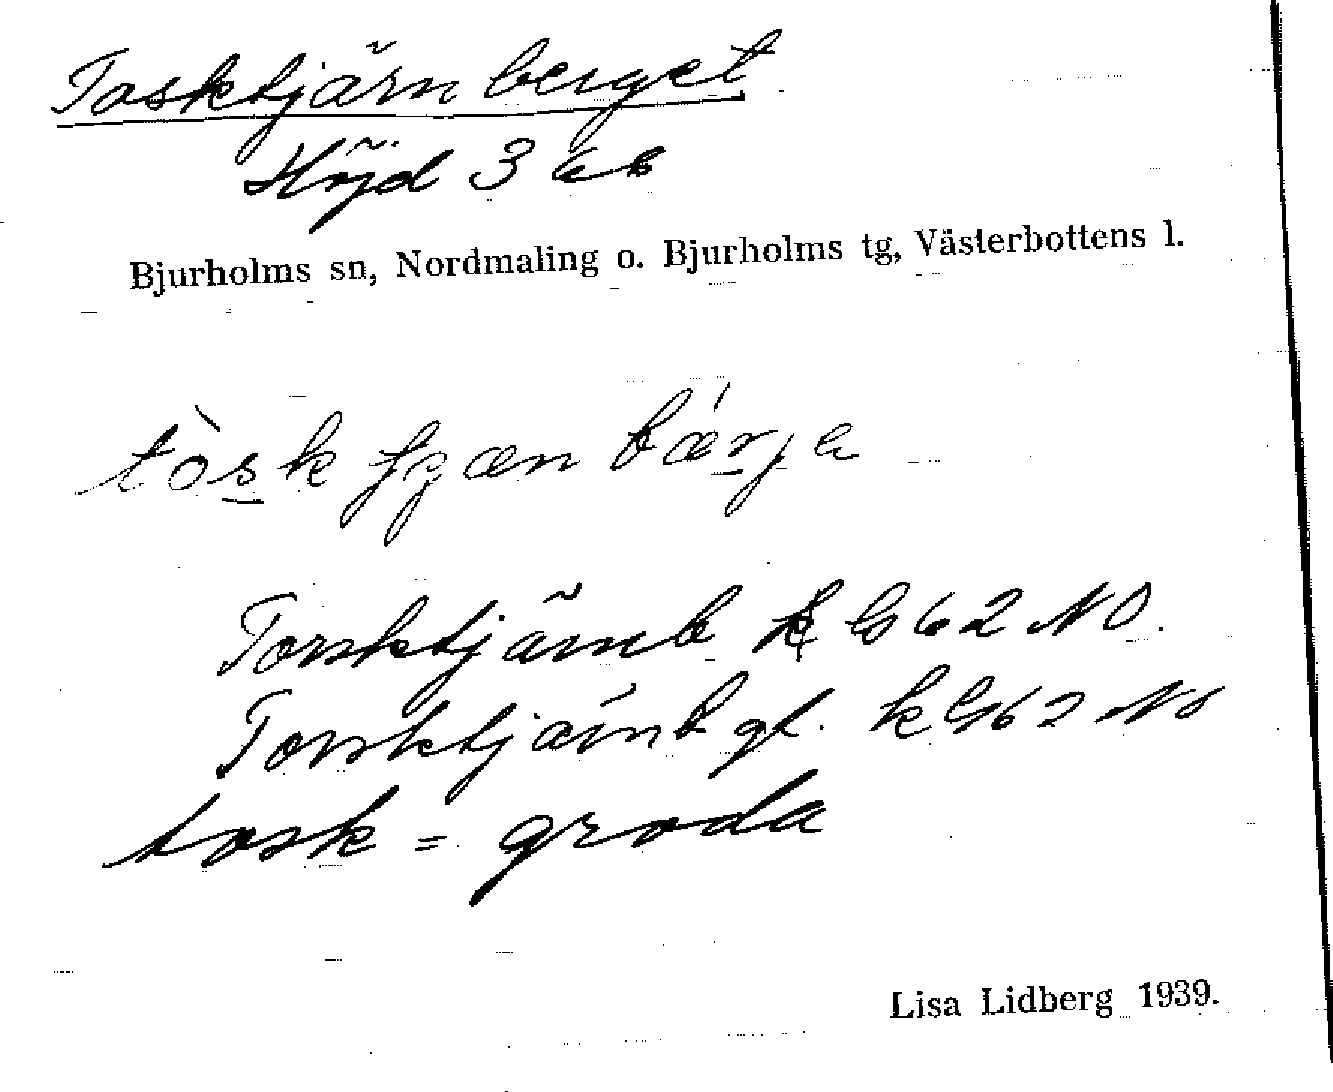 Tosktjärnberget
Höjd 3 ab
Bjurholms sn, Nordmaling o. Bjurholms tg, Västerbottens l.
tòsk bærja
Torsktjärnb k G62 NO.
Torsktjärnb gl. k G62 NO
tosk = groda
Lisa Lidberg 1939.